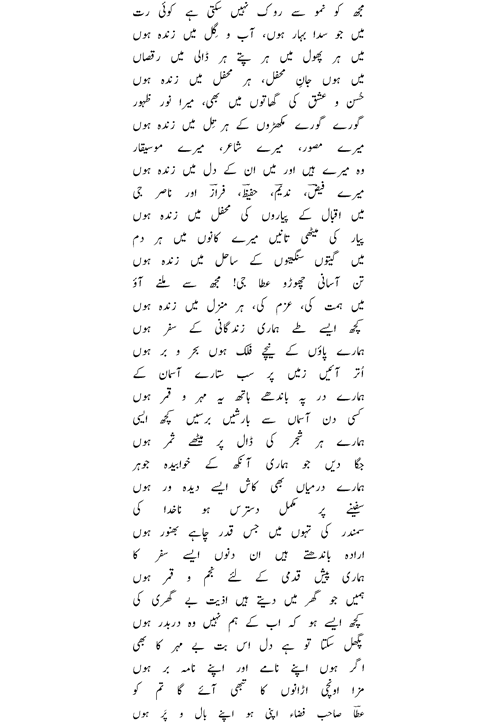 مجھ کو نمو سے روک نہیں سکتی ہے کوئی رت
میں جو سدا بہار ہوں، آب و گِل میں زندہ ہوں
میں ہر پھول میں ہر پتے ہر ڈالی میں رقصاں
میں ہوں جانِ محفل، ہر محفل میں زندہ ہوں
حُسن و عشق کی گھاتوں میں بھی، میرا نور ظہور
گورے گورے مکھڑوں کے ہر تِل میں زندہ ہوں
میرے مصور، میرے شاعر، میرے موسیقار
وہ میرے ہیں اور میں ان کے دل میں زندہ ہوں
میرے فیضؔ، ندیمؔ، حفیظؔ، فرازؔ اور ناصر جی
میں اقبال کے پیاروں کی محفل میں زندہ ہوں
پیار کی میٹھی تانیں میرے کانوں میں ہر دم
میں گیتوں سنگیتوں کے ساحل میں زندہ ہوں
تن آسانی چھوڑو عطا جی! مجھ سے ملنے آؤ
میں ہمت کی، عزم کی، ہر منزل میں زندہ ہوں
کچھ ایسے طے ہماری زندگانی کے سفر ہوں
ہمارے پاؤں کے نیچے فلک ہوں بحر و بر ہوں
اُتر آئیں زمیں پر سب ستارے آسمان کے
ہمارے در پہ باندھے ہاتھ یہ مہر و قمر ہوں
کسی دن آسماں سے بارشیں برسیں کچھ ایسی
ہمارے ہر شجر کی ڈال پر میٹھے ثمر ہوں
جگا دیں جو ہماری آنکھ کے خوابیدہ جوہر
ہمارے درمیاں بھی کاش ایسے دیدہ ور ہوں
سفینے پر مکمل دسترس ہو ناخدا کی
سمندر کی تہوں میں جس قدر چاہے بھنور ہوں
ارادہ باندھتے ہیں ان دنوں ایسے سفر کا
ہماری پیش قدمی کے لئے نجم و قمر ہوں
ہمیں جو گھر میں دیتے ہیں اذیت بے گھری کی
کچھ ایسے ہو کہ اب کے ہم نہیں وہ دربدر ہوں
پگھل سکتا تو ہے دل اس بت بے مہر کا بھی
اگر ہوں اپنے نامے اور اپنے نامہ بر ہوں
مزا اونچی اڑانوں کا تبھی آئے گا تم کو
عطاؔ صاحب فضاء اپنی ہو اپنے بال و پَر ہوں